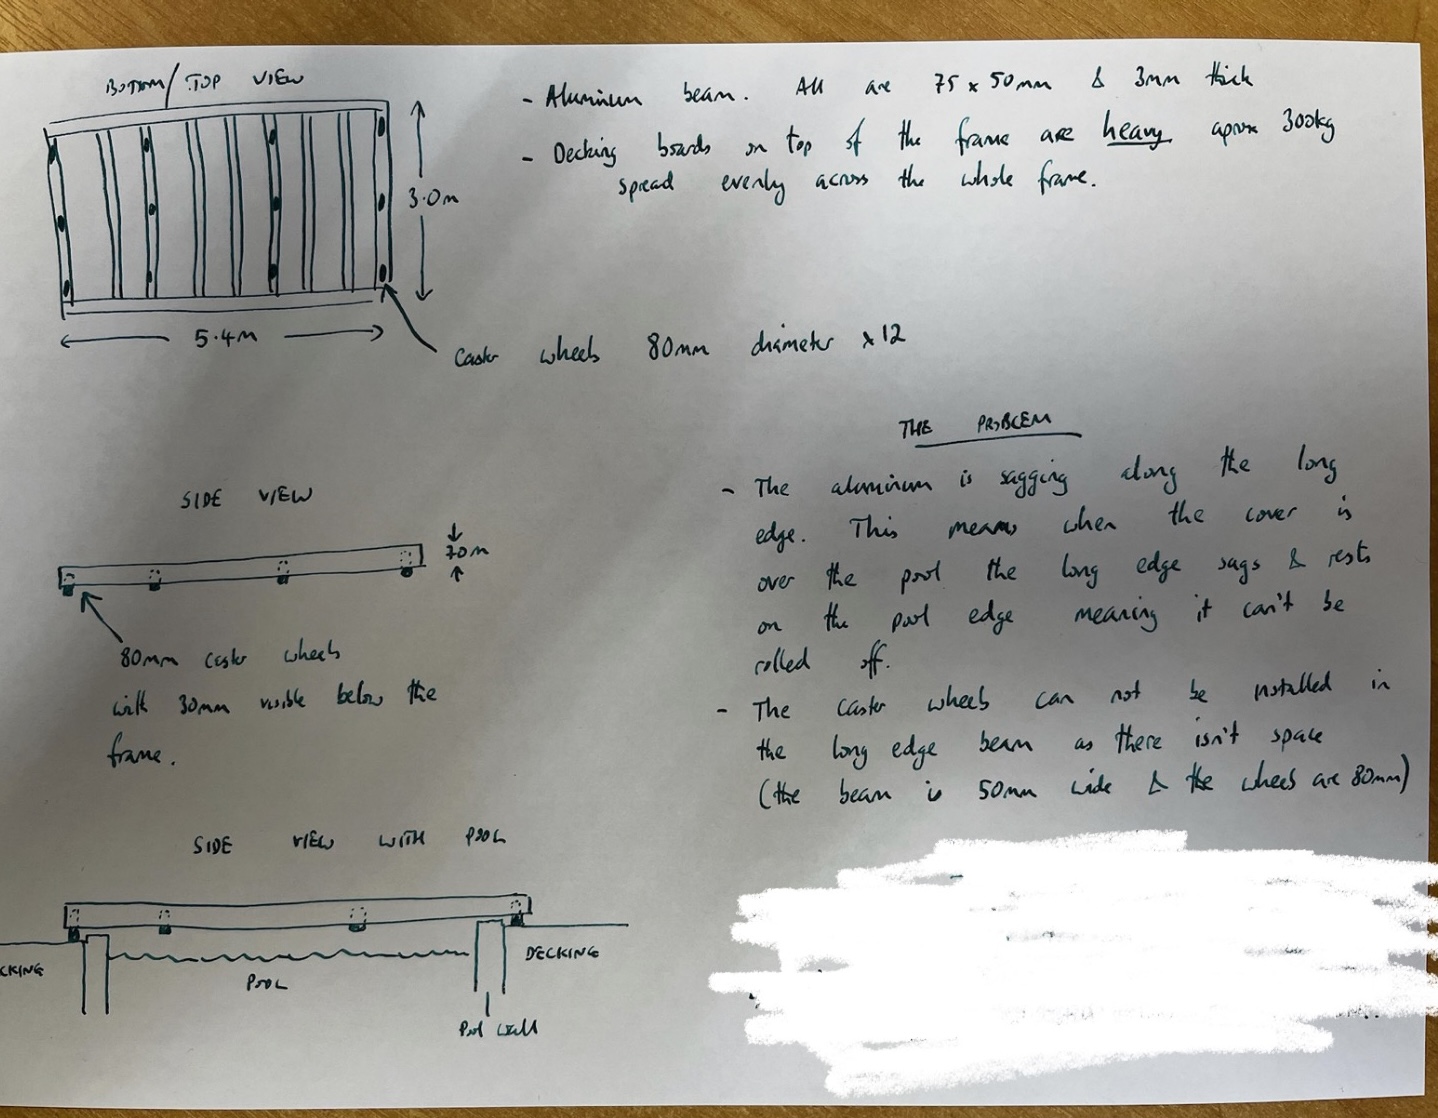 BOTTOM/TOP VIEW
3.0m
5.4m
- Aluminium beam. All are 75 x 50mm & 3mm thick
- Decking boards on top of the frame are heavy aprox 300kg
spread evenly across the whole frame.
Caster wheels 80mm diameter x12
SIDE VIEW
70m
80mm caster wheels
with 30mm visible below the
frame.
THE PROBLEM
- The aluminium is sagging along the long
edge. This means when the cover is
over the pool the long edge sags & rests
on the pool edge meaning it can't be
rolled off.
- The caster wheels can not be installed in
the long edge beam as there isn't space
(the beam is 50mm wide & the wheels are 80mm)
SIDE VIEW WITH POOL
CKING
POOL
DECKING
Pool wall